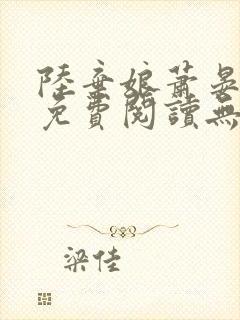 陸棄娘蕭晏
免費閱讀無
梁佳